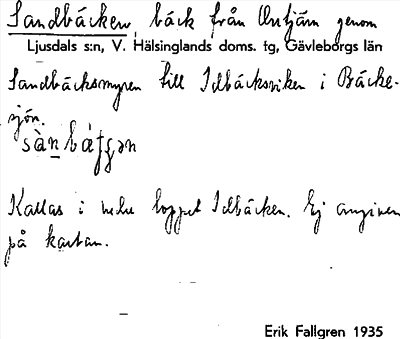 Sandbäcken, bäck från Orrtjärn genom
Ljusdals s:n, V. Hälsinglands doms. tg, Gävleborgs län
Sandbäcksmyren till Idbäcksviken i Bäcke-
sjön.
Kallas i hela loppet Idbäcken. Ej angiven
på kartan.
Erik Fallgren 1935